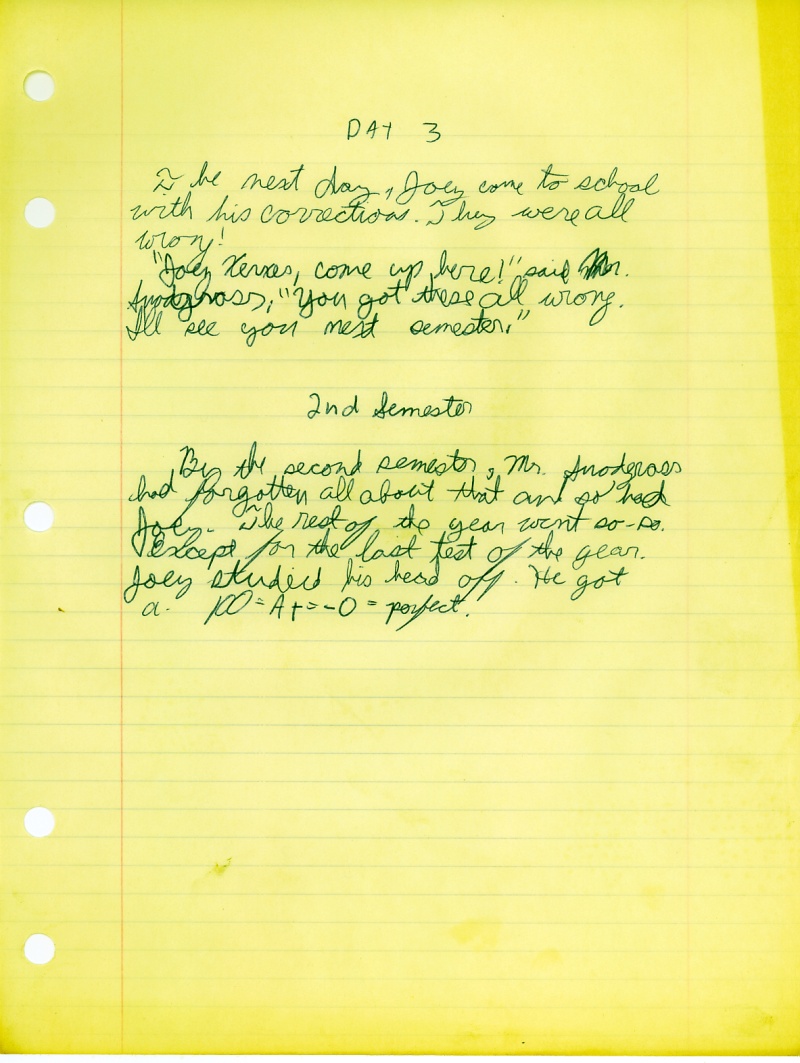 DAY 3
The next day, Joey come to school
with his corrections. They were all
wrong!
"Joey Xerxes, come up here!" said Mr.
Snodgrass, "You got these all wrong.
I'll see you next semester."
2nd Semester
By the second semester, Mr. Snodgrass
had forgotten all about that and so had
Joey. The rest of the year went so-so.
Except for the last test of the year.
Joey studied his head off. He got
a. 100 = A+ = -0 = perfect.